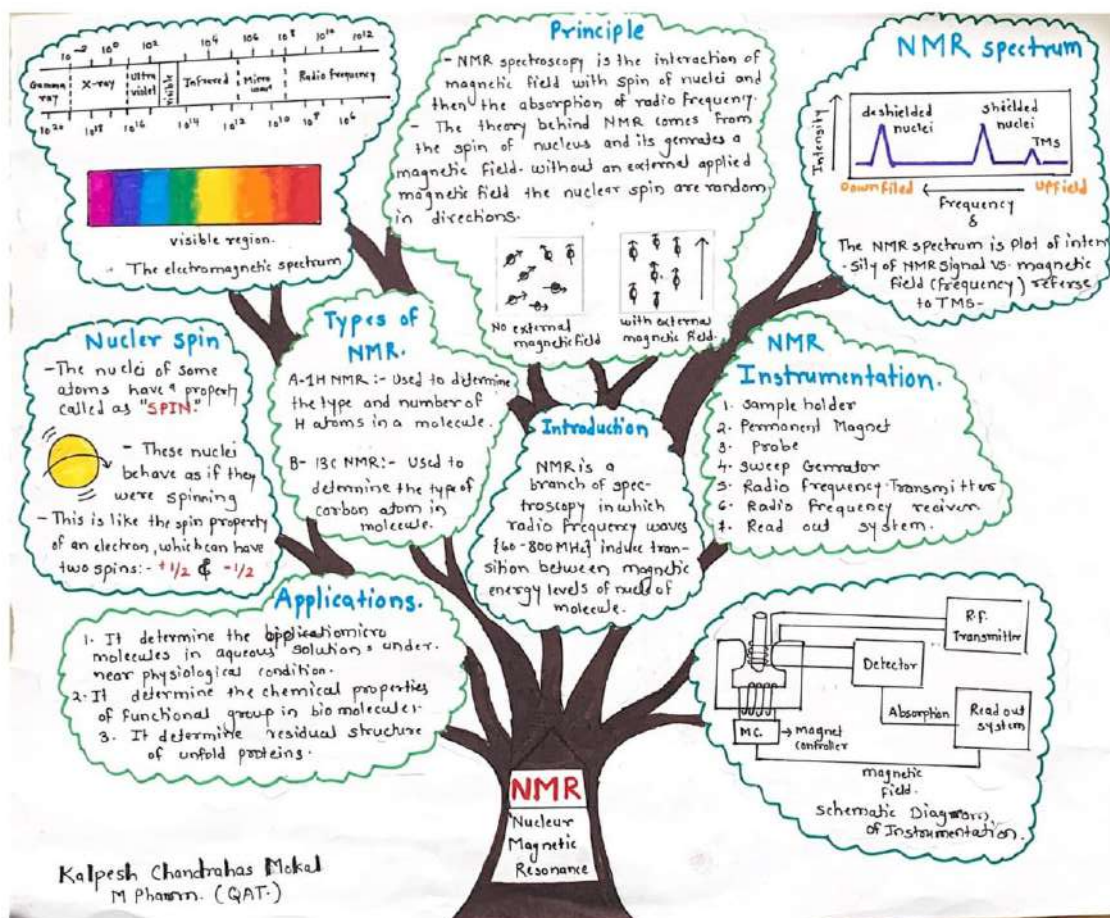 10⁻² 10⁰ 10² 10⁴ 10⁶ 10⁸ 10¹⁰ 10¹²
Gamma ray X-ray Ultra violet Visible Infrared Micro wave Radio frequency
10²⁰ 10¹⁸ 10¹⁶ 10¹⁴ 10¹² 10¹⁰ 10⁸ 10⁶
visible region.
The electromagnetic spectrum
Principle
- NMR spectroscopy is the interaction of
magnetic field with spin of nuclei and
then the absorption of radio frequency.
- The theory behind NMR comes from
the spin of nucleus and its genrates a
magnetic field. without an external applied
magnetic field the nuclear spin are random
in directions.
No external
magnetic field
with external
magnetic field.
NMR spectrum
Intensity
deshielded
nuclei
shielded
nuclei
TMS
Downfiled
Upfield
Frequency
&
The NMR spectrum is plot of inten
-sity of NMR signal VS. magnetic
field (frequency) referse
to TMS-
Nucler spin
-The nuclei of some
atoms have a property
called as "SPIN."
- These nuclei
behave as if they
were spinning
- This is like the spin property
of an electron, which can have
two spins:- +1/2 & -1/2
Types of
NMR.
A-1H NMR :- Used to determine
the type and number of
H atoms in a molecule.
B- 13C NMR:- Used to
determine the type of
carbon atom in
molecule.
Introduction
NMR is a
branch of spec-
troscopy in which
radio frequency waves
{60-800 MHz} induce tran-
sition between magnetic
energy levels of nuclei of
molecule.
NMR
Instrumentation.
1. Sample holder
2. Permanent Magnet
3. Probe
4. Sweep Genrator
5. Radio frequency-Transmitter
6. Radio frequency reciver
7. Read out system.
Applications.
1. It determine the
molecules in aqueous solutions under.
near physiological condition.
2. It determine the chemical properties
of functional group in bio molecules
3. It determine residual structure
of unfold proteins.
R.F.
Transmitter
Detector
Absorption
Read out
system
M.C. → magnet
controller
magnetic
Field.
Schematic Diagram
of Instrumentation.
NMR
Nucleur
Magnetic
Resonance
Kalpesh Chandrahas Mokal
M Pharm. (QAT.)